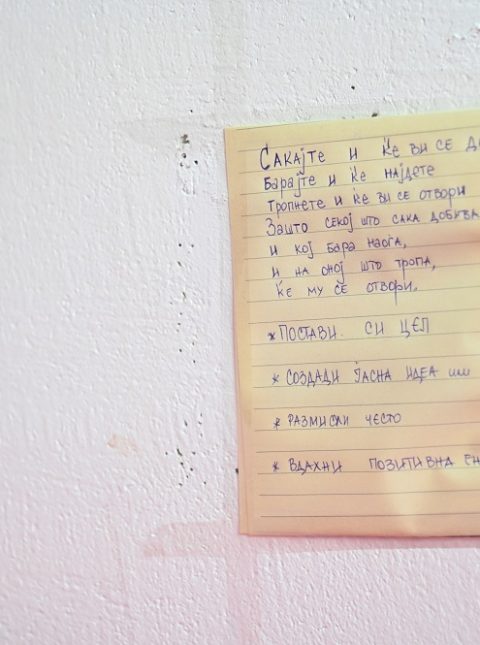 Сакајте и ќе ви се
Барајте и ќе најдете
Тропнете и ќе ви се отвори
Зашто секој што сака добива
и кој бара наоѓа,
и на оној што тропа,
ќе му се отвори.
* Постави си цел
* Создади јасна идеа или
* Размисли често
* Вдахни позитивна